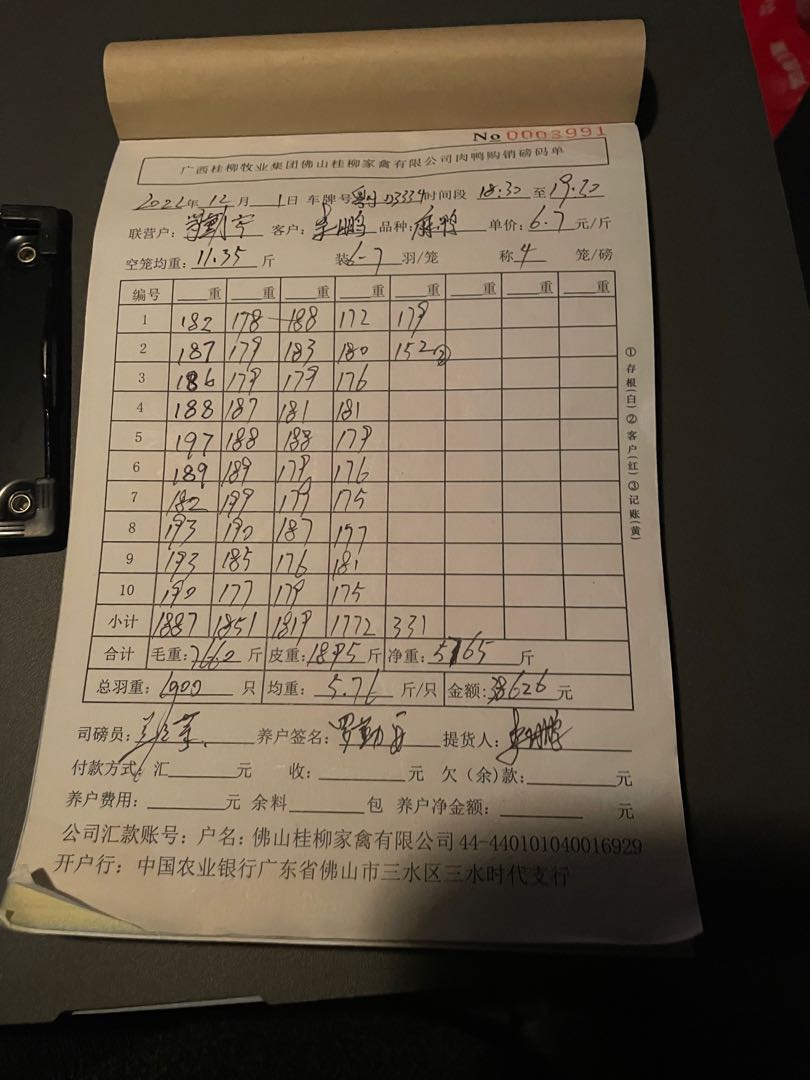 No 0003991
广西桂柳牧业集团佛山桂柳家禽有限公司肉鸭购销磅码单
2022年 12月 1日 车牌号 03334 时间段 18:30 至 19:30
联营户: 客户: 李鹏 品种: 麻鸭 单价: 6.7 元/斤
空笼均重: 11.35 斤 装 6-7 羽/笼 称 4 笼/磅
编号 重 重 重 重 重 重 重 重
1 182 178 188 172 179
2 187 179 183 180 152 ②
3 186 179 179 176
4 188 187 181 181
5 197 188 188 179
6 189 189 179 176
7 182 199 179 175
8 193 190 187 177
9 193 185 176 181
10 190 177 179 175
小计 1887 1851 1819 1772 331
合计 毛重: 7660 斤 皮重: 1895 斤 净重: 5765 斤
总羽重: 1000 只 均重: 5.76 斤/只 金额: 38626 元
司磅员: 养户签名: 罗勤 提货人: 李鹏
付款方式: 汇 元 收: 元 欠(余)款: 元
养户费用: 元 余料 包 养户净金额: 元
公司汇款账号: 户名: 佛山桂柳家禽有限公司 44-440101040016929
开户行: 中国农业银行广东省佛山市三水区三水时代支行
①存根(白)②客户(红)③记账(黄)